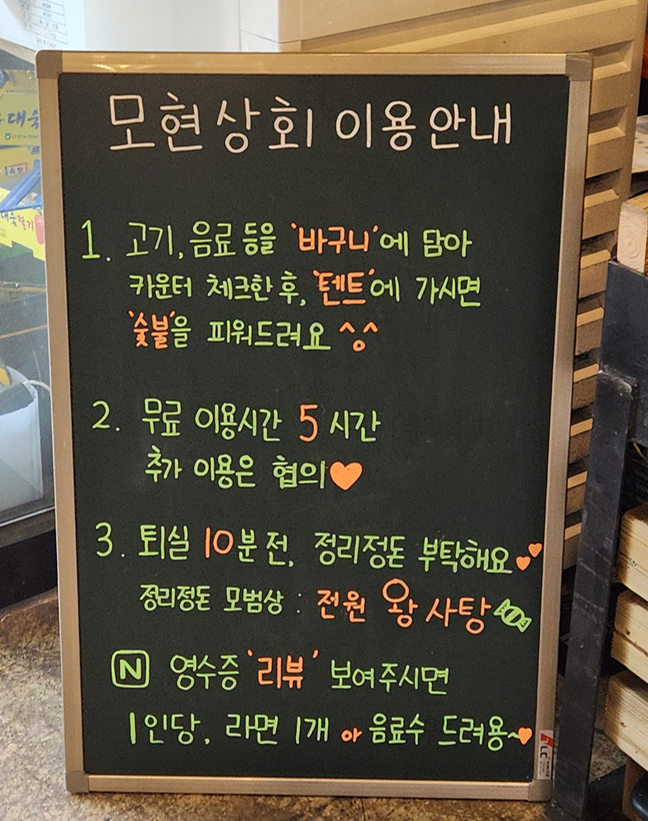 모현상회 이용안내
1. 고기, 음료 등을 '바구니'에 담아
카운터 체크한 후, '텐트'에 가시면
'숯불'을 피워드려요 ^o^
2. 무료 이용시간 5시간
추가 이용은 협의♥
3. 퇴실 10분 전, 정리정돈 부탁해요♥♥
정리정돈 모범상 : 전원 왕 사탕🍬
N 영수증 '리뷰' 보여주시면
1인당, 라면 1개 or 음료수 드려용~♥